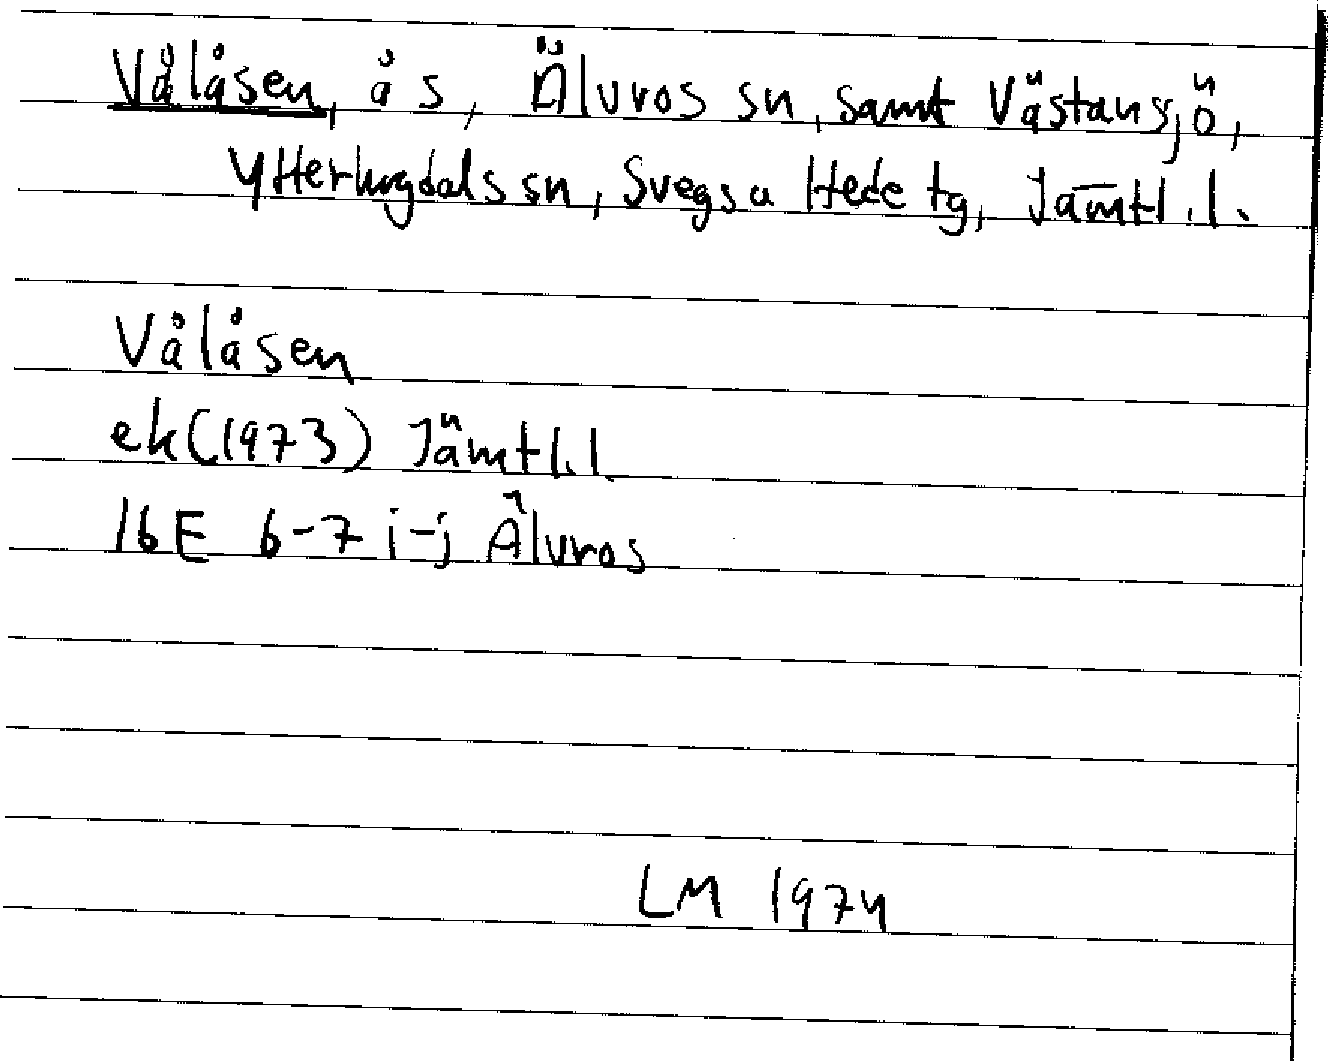 Vålåsen, ås, Älvros sn, samt Västansjö,
Ytterhogdals sn, Svegs o Hede tg, Jämtl.l.
Vålåsen
ek(1973) Jämtl.l.
16E 6-7 i-j Älvros
LM 1974